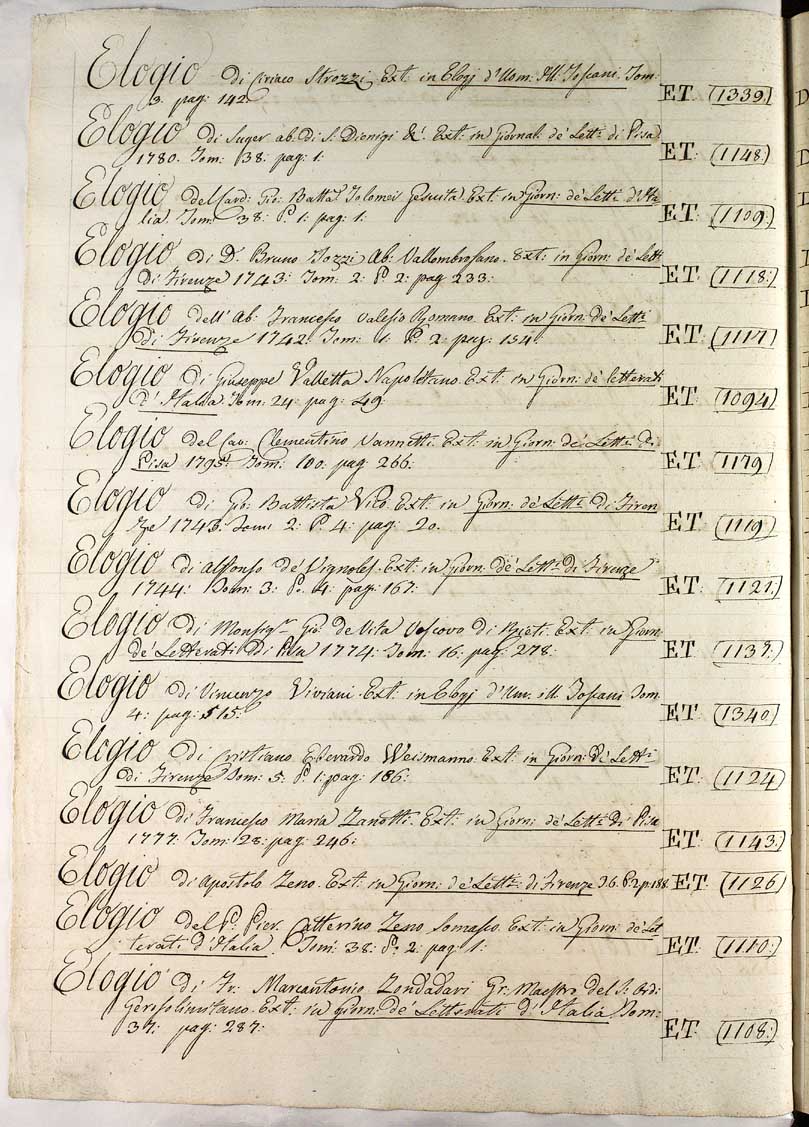 Elogio di Ciriaco Strozzi Ext: in Elogj d'Uom: Ill: Toscani. Tom:
3. pag: 142. ET. (1339.)
Elogio di Suger ab. di S. Dionigi &c. Ext: in Giornal: dè Lett: di Pisa
1780. Tom: 38: pag: 1: ET: (1148:)
Elogio del Card: Gio: Batta Tolomei Gesuita. Ext: in Giorn: dè Lett: d'Ita
lia Tom: 38: P: 1: pag: 1: ET: (1109:)
Elogio di D. Bruno Tozzi Ab: Vallombrosano. Ext: in Giorn: dè Lett:
di Firenze 1743: Tom: 2: P. 2: pag 233: ET: (1118:)
Elogio dell' Ab: Francesco Valesio Romano. Ext: in Giorn: dè Lett:
di Firenze 1742: Tom: 1: P. 2: pag: 154: ET: (1117)
Elogio di Giuseppe Valletta Napoletano. Ext: in Giorn: dè letterati
d' Italia Tom: 24: pag: 49: ET: (1094)
Elogio del Cav: Clementino Vannetti. Ext: in Giorn: dè Lett: di
Pisa 1795: Tom: 100. pag 266: ET: (1179)
Elogio di Gio: Battista Vico. Ext: in Giorn: dè Lett: di Firen
ze 1743. Tom: 2: P. 4: pag: 20. ET: (1119)
Elogio di Alfonso de' Vignoles. Ext: in Giorn: dè Lett: di Firenze
1744: Tom: 3: P. 4: pag: 167: ET: (1121.)
Elogio di Monsigr. Gio: de Vita Vescovo di Rieti. Ext: in Giorn:
dè Letterati di Pisa 1774: Tom: 16: pag: 278: ET: (1137.)
Elogio di Vincenzo Viviani. Ext: in Elogj d'Uom. ill. Toscani Tom.
4: pag: 515: ET: (1340.)
Elogio di Cristiano Eberardo Weismanno. Ext: in Giorn: dè Lett:
di Firenze Tom: 5. P. 1: pag: 186: ET: (1124)
Elogio di Francesco Maria Zanotti. Ext: in Giorn: dè Lett: di Pisa
1777: Tom: 28: pag: 246: ET: (1143.)
Elogio di Apostolo Zeno. Ext: in Giorn: dè Lett: di Firenze T. 6. P. 2. p: 188. ET: (1126)
Elogio del P. Pier. Catterino Zeno Somasco. Ext: in Giorn: dè Let
terati d' Italia. Tom: 38: P: 2: pag: 1: ET: (1110:)
Elogio di Fr: Marcantonio Zondadari Gr: Maestro del S: Ord:
Gerosolimitano. Ext: in giorn: dè Letterati d' Italia Tom:
37: pag: 287: ET: (1108:)